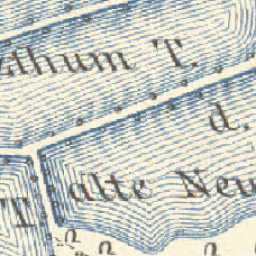 thum T.
d.
alte Neu
T.